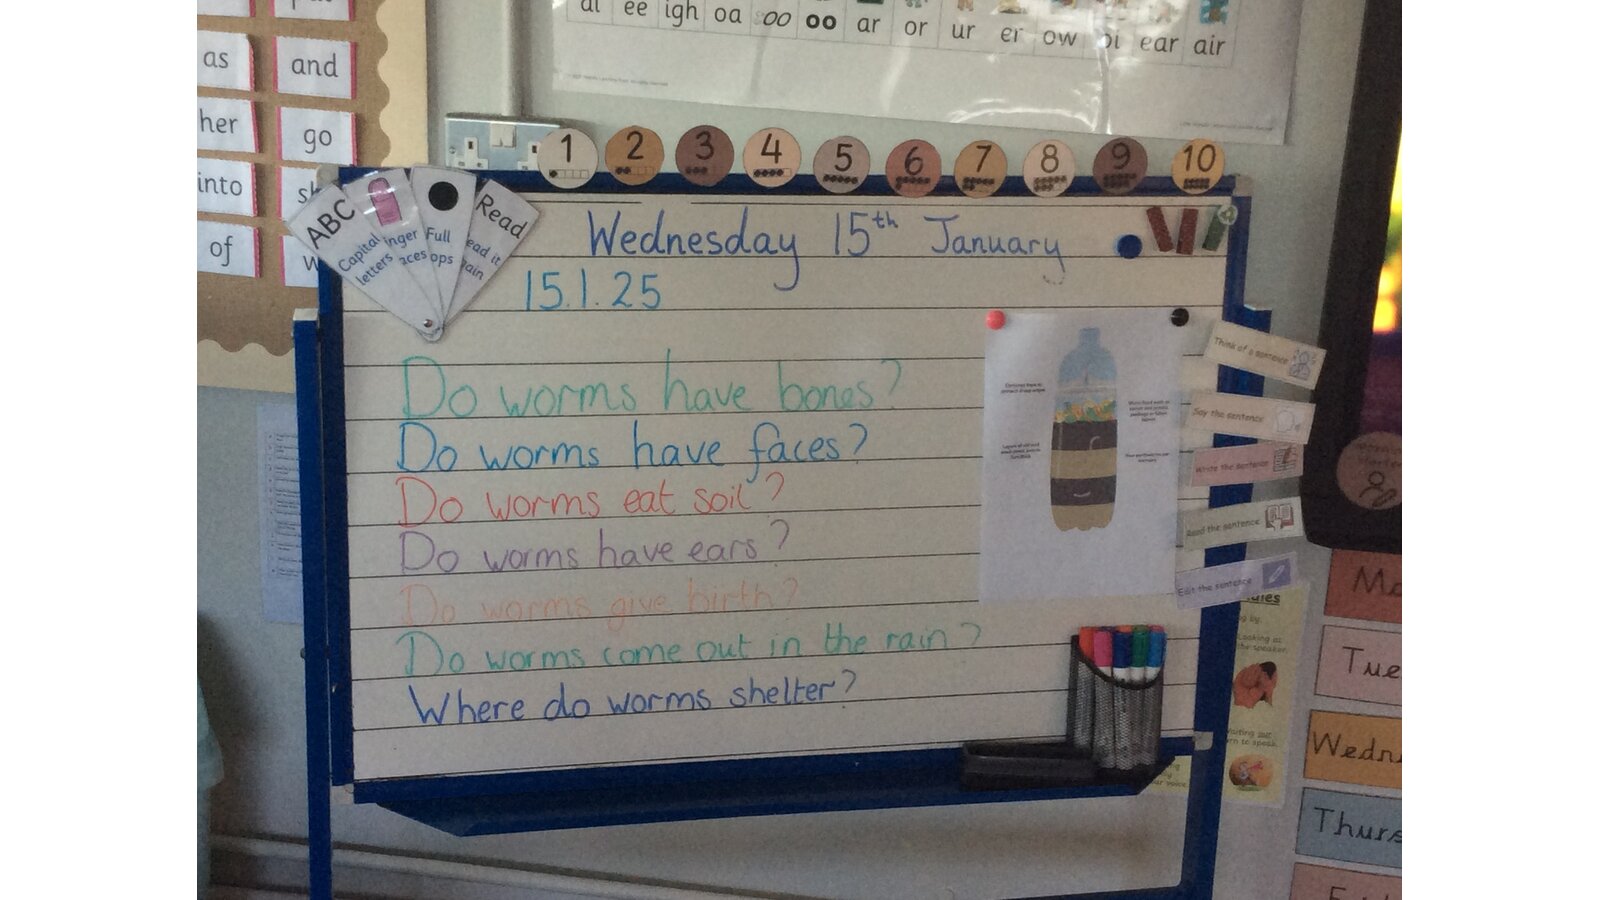 ee igh oa oo oo ar or ur er ow oi ear air
as
and
her
go
into
of
1 2 3 4 5 6 7 8 9 10
ABC
Capital
letters
Full
Read
Wednesday 15th January
15.1.25
Do worms have bones?
Do worms have faces?
Do worms eat soil?
Do worms have ears?
Do worms give birth?
Do worms come out in the rain?
Where do worms shelter?
Think of a sentence
Say the sentence
Write the sentence
Read the sentence
Edit the sentence
Tue
Wedn
Thurs